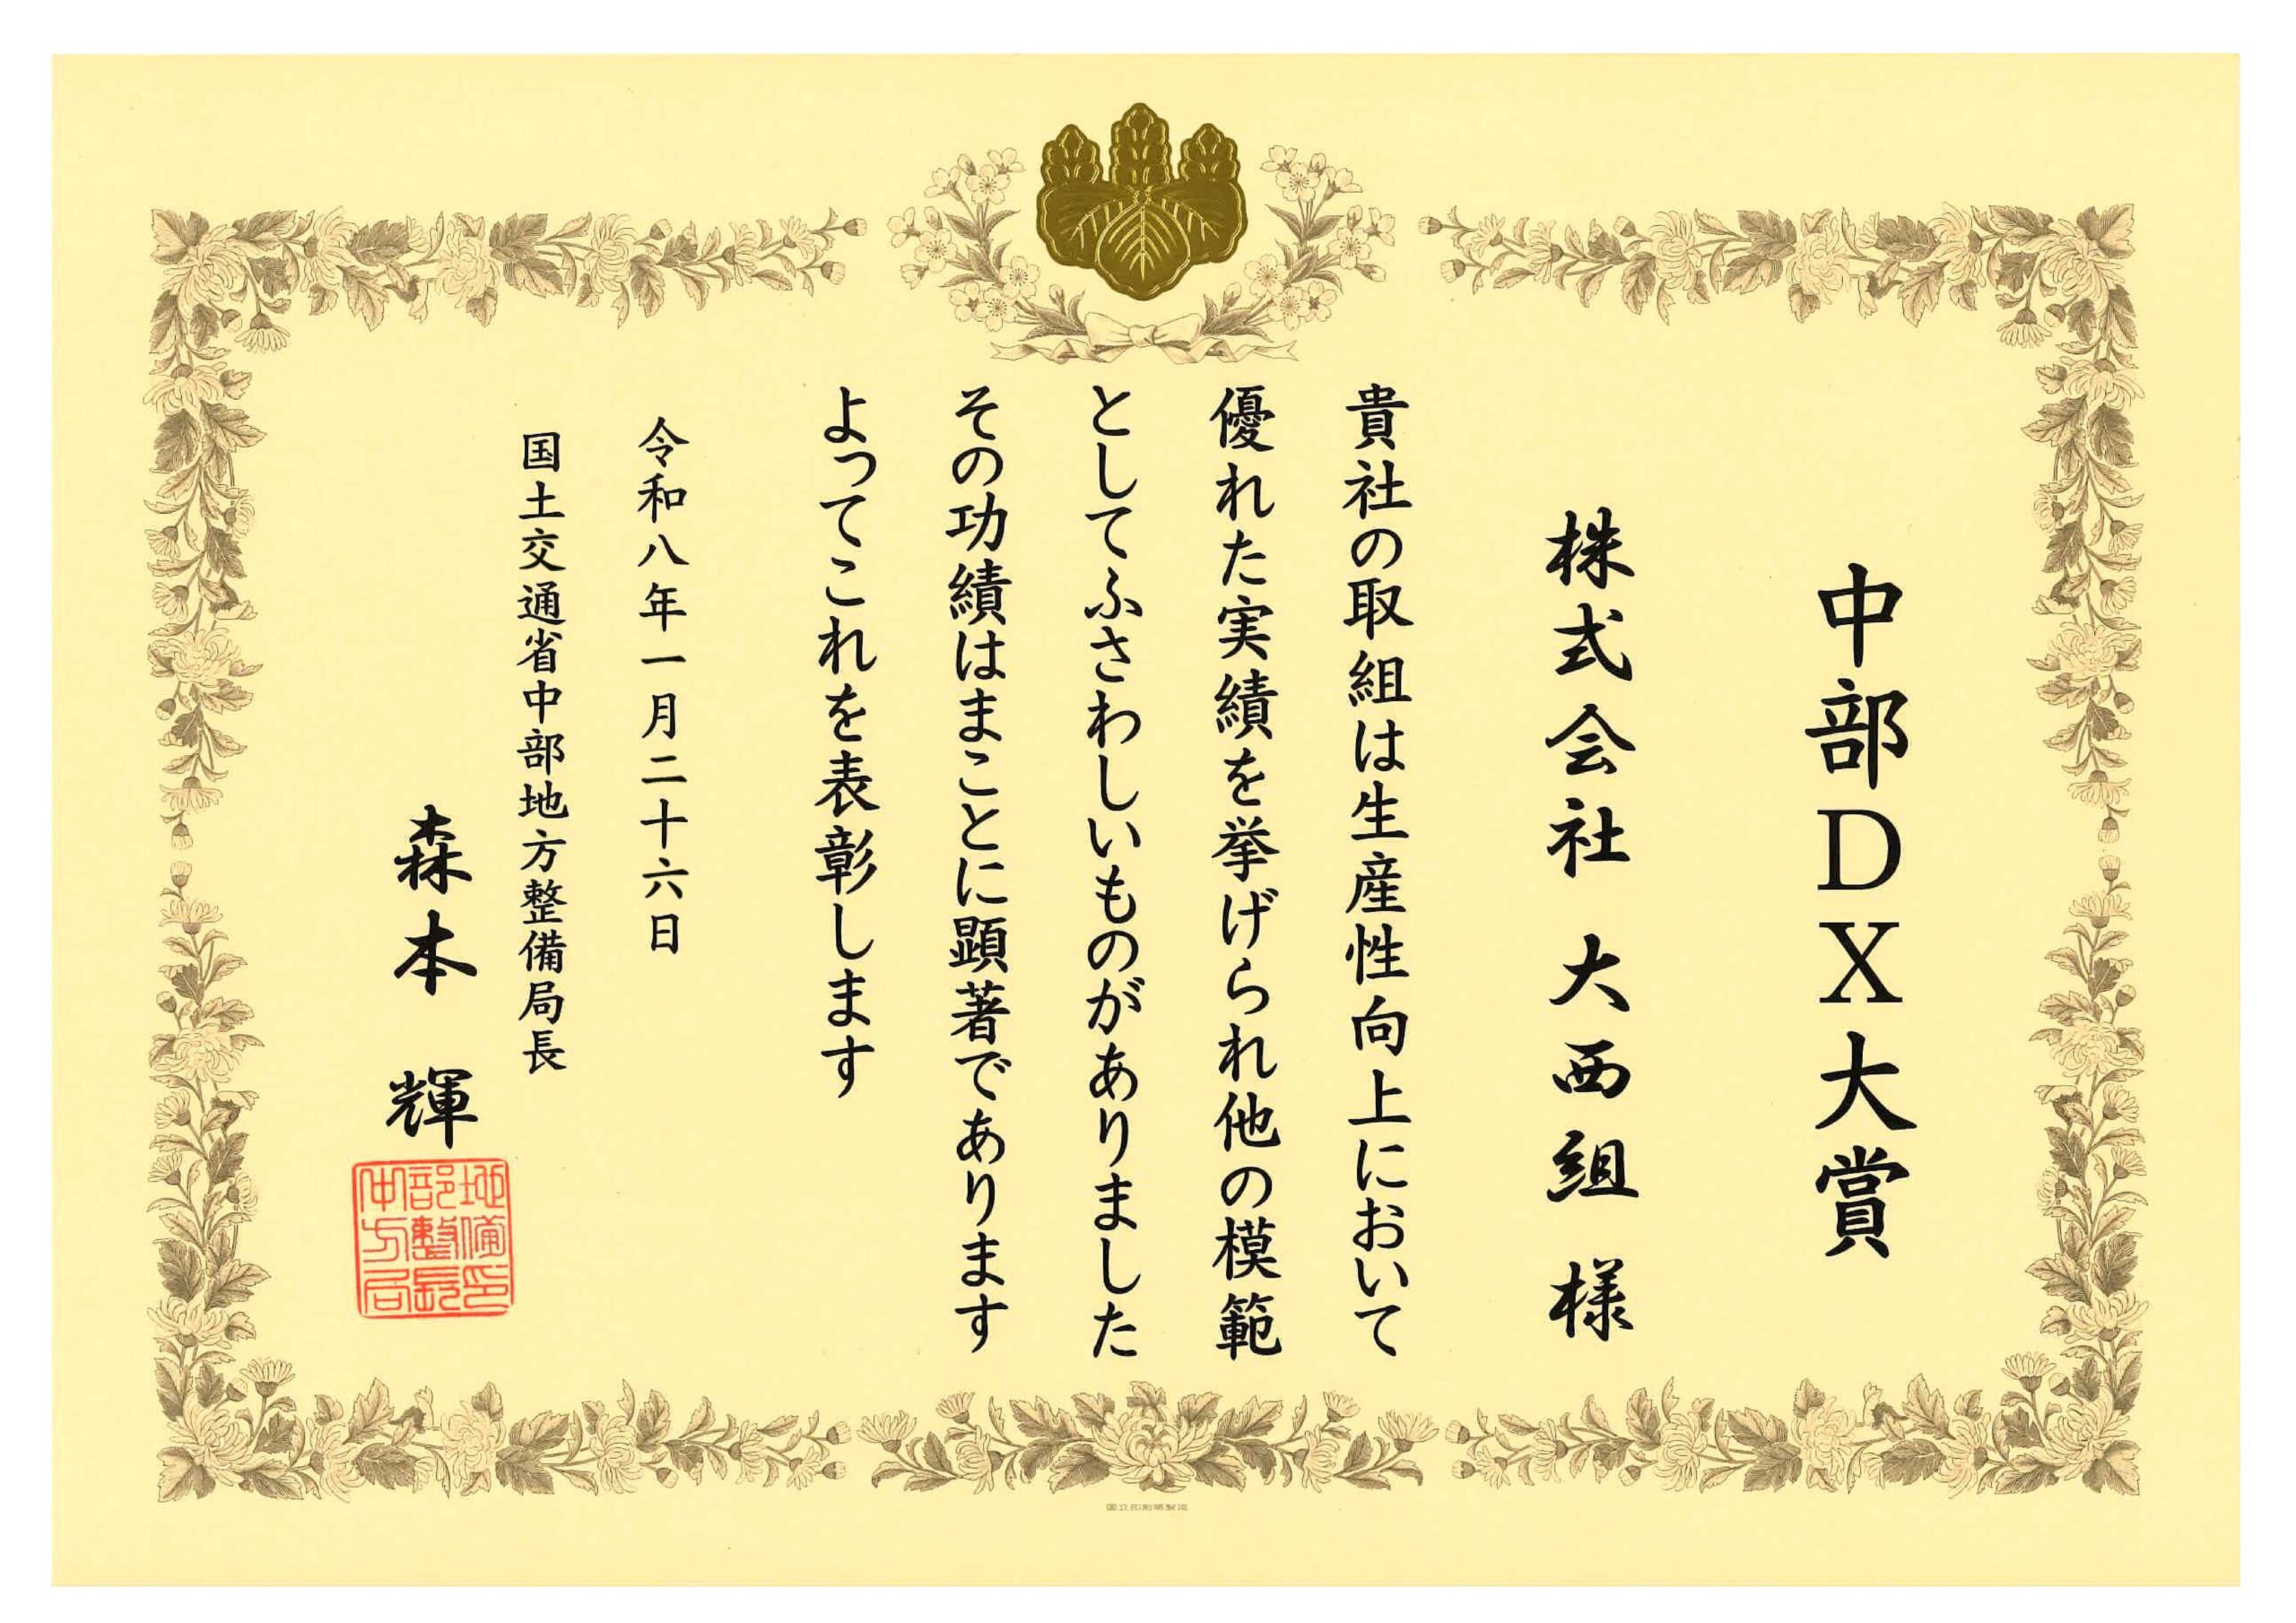 中部DX大賞
株式会社 大西組 様
貴社の取組は生産性向上において
優れた実績を挙げられ他の模範
としてふさわしいものがありました
その功績はまことに顕著であります
よってこれを表彰します
令和八年一月二十六日
国土交通省中部地方整備局長
森本 輝
中部地
方整備
局長印
国立印刷局製造